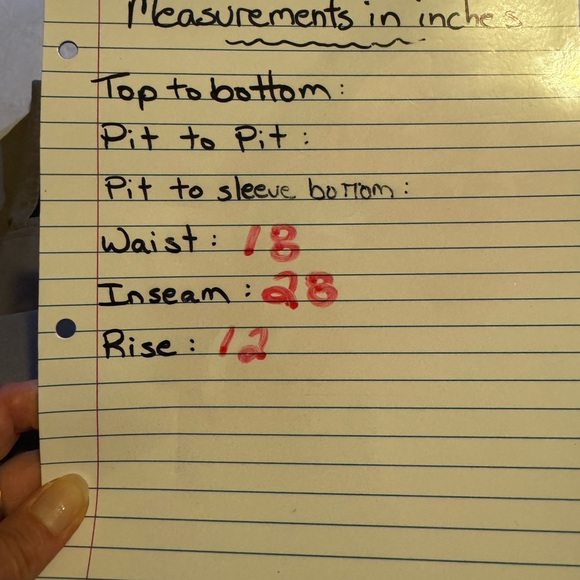 Measurements in inches
Top to bottom:
Pit to Pit :
Pit to sleeve bottom:
Waist : 18
Inseam : 28
Rise : 12